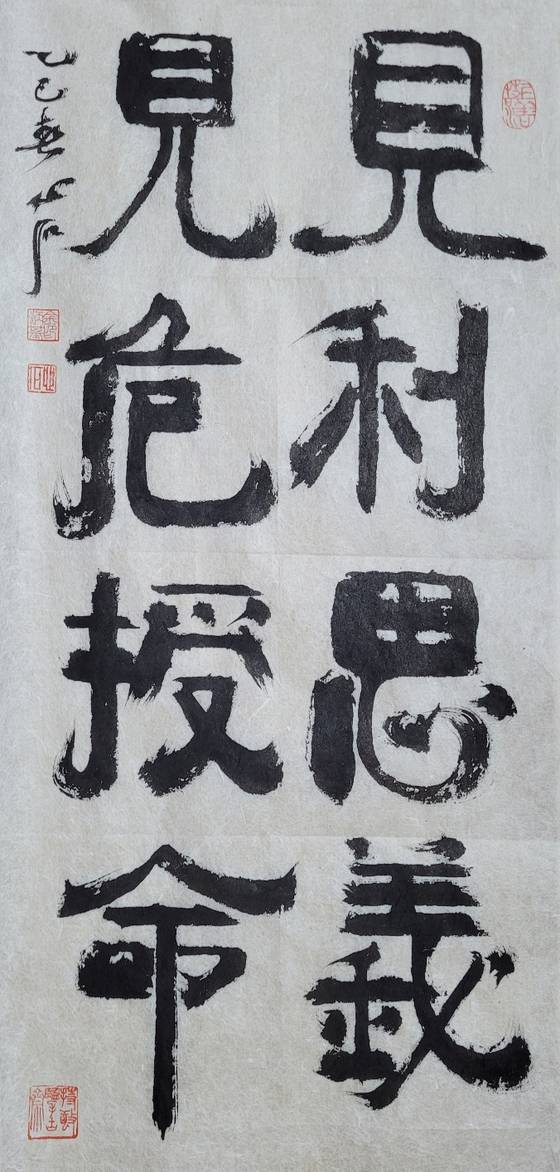 見利思義
見危授命
乙巳春